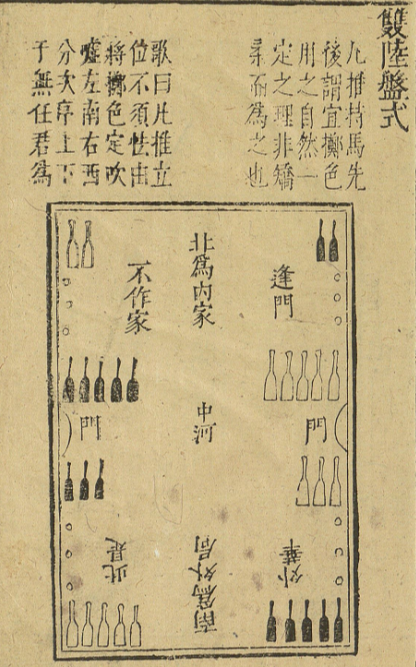 雙陸盤式
凡推持馬先
後謂宜擲色
用之自然一
定之理非矯
柔而爲之也
歌曰凡推立
位不須怯由
將擲色定吹
噓左南右西
分次序上下
于無任君爲
逢門
北爲内家
不作家
門
中河
門
外華
南爲外局
此是